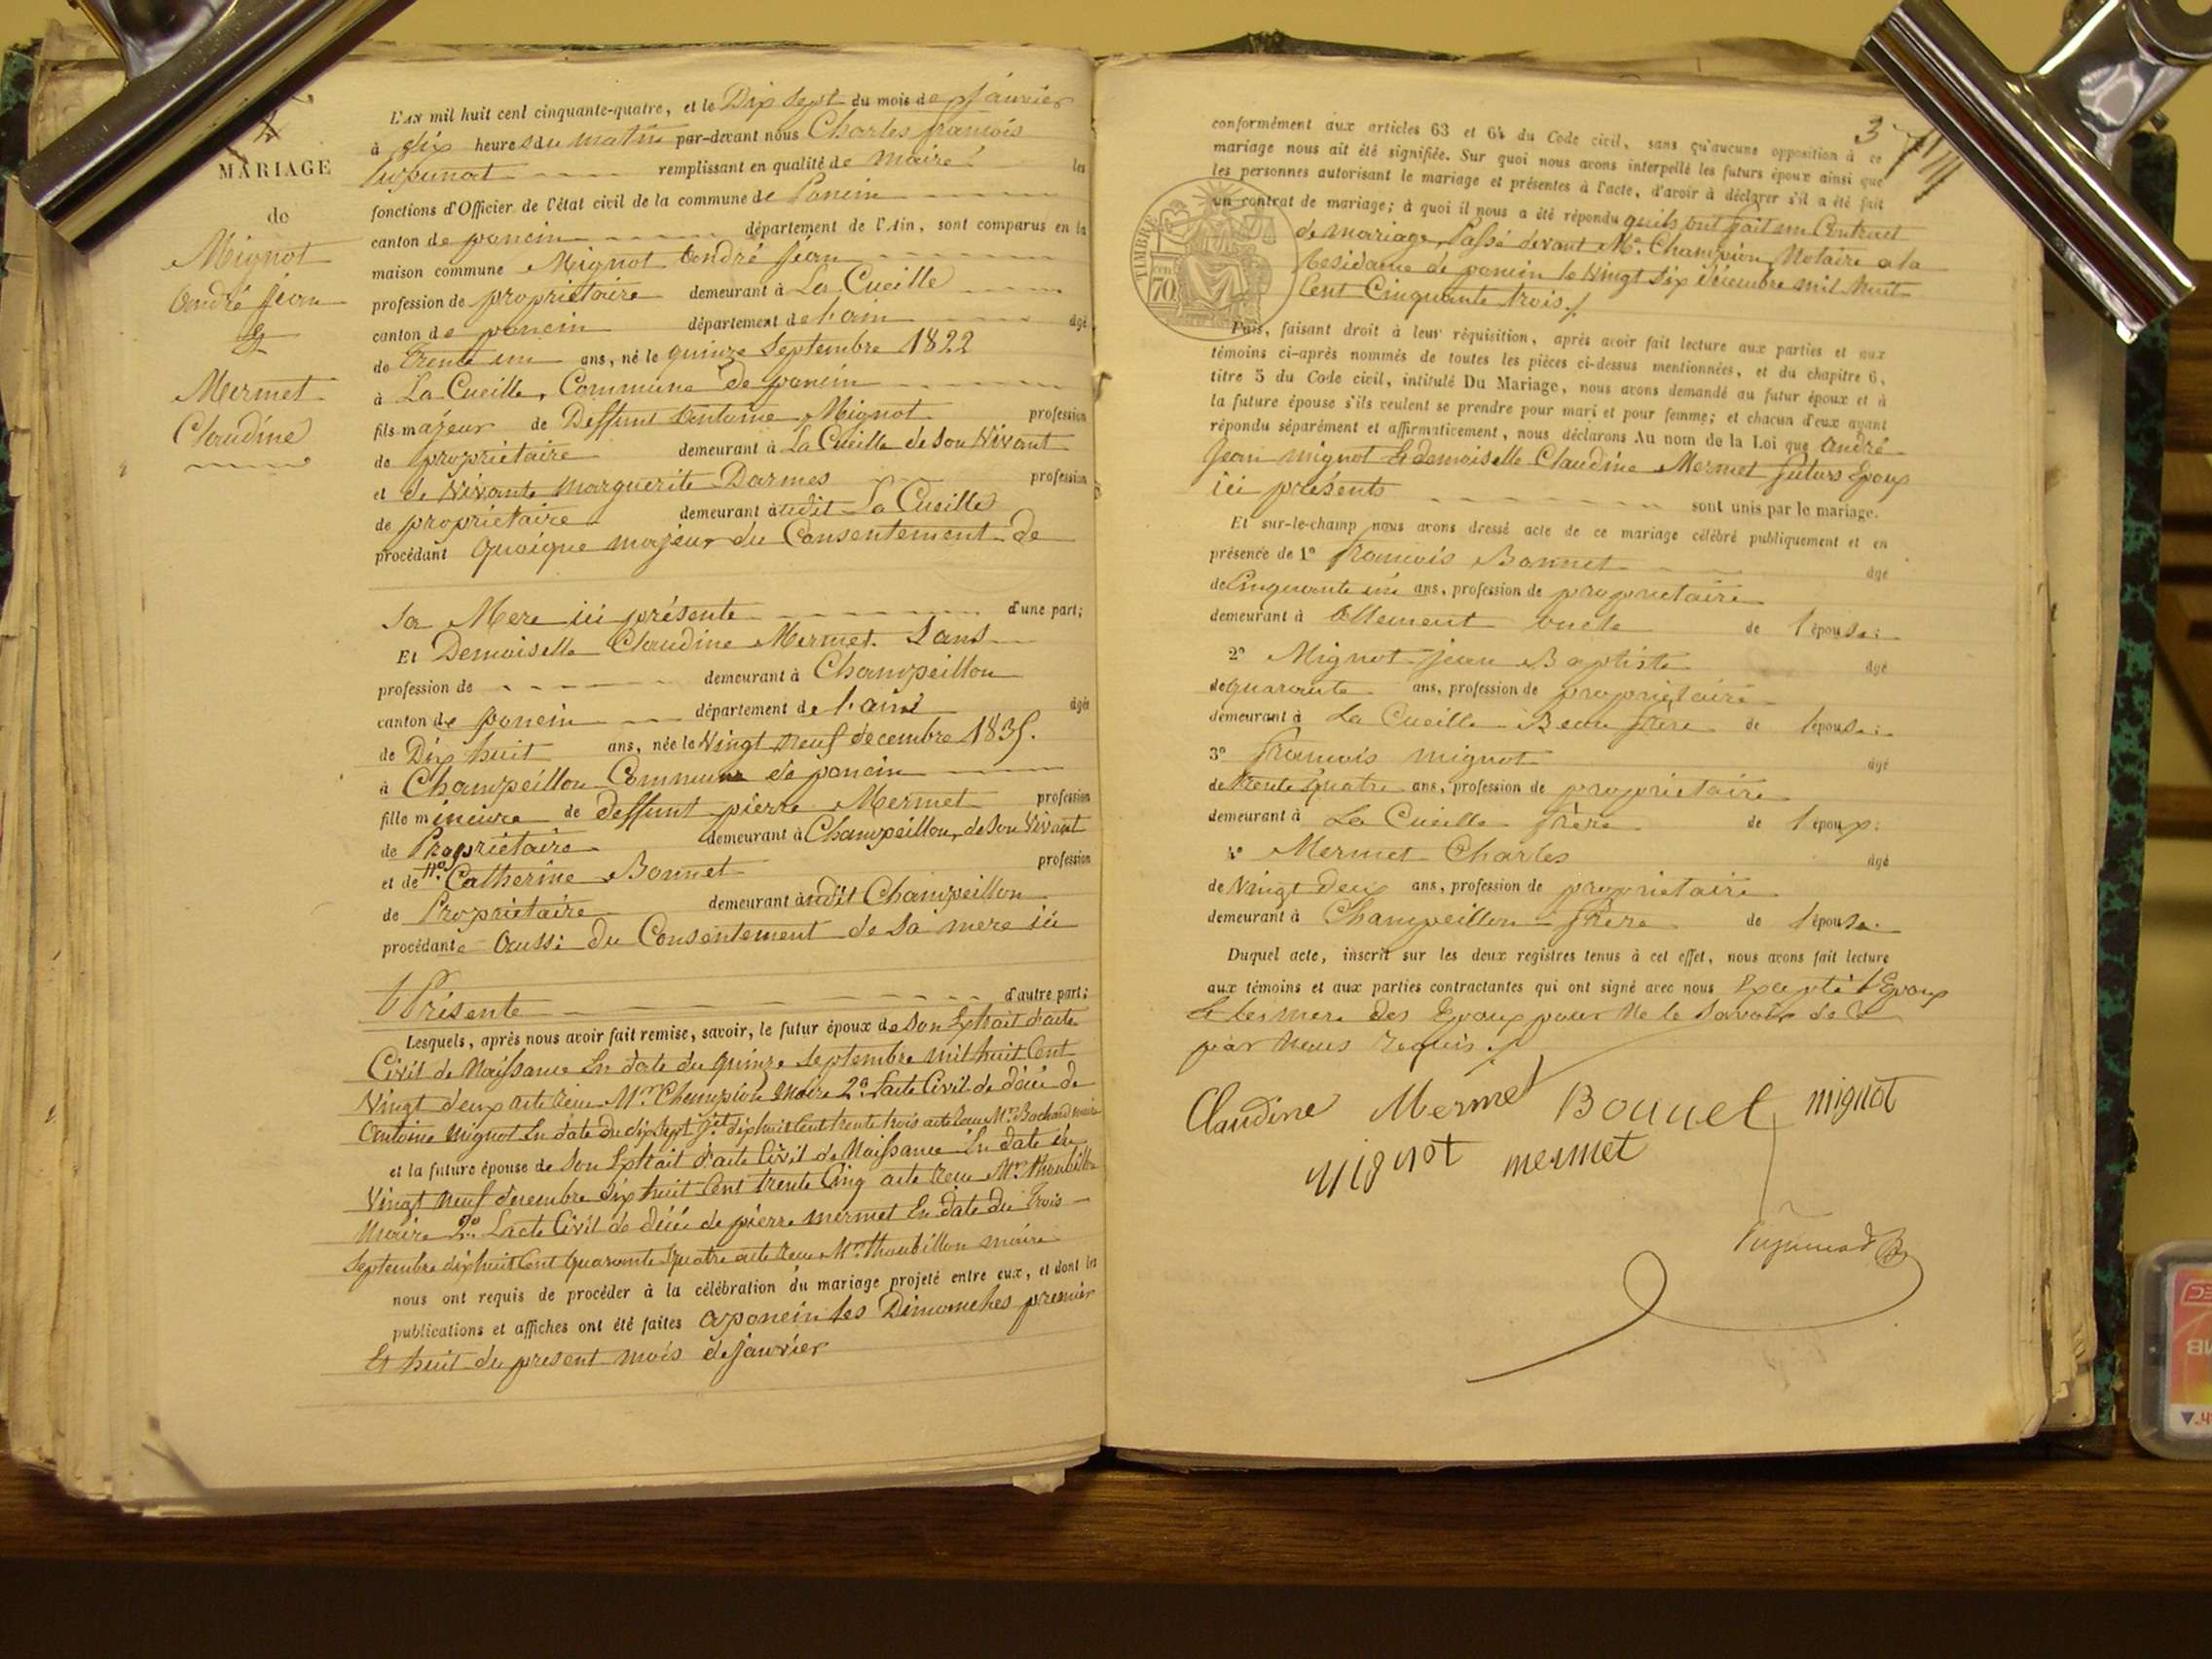 L'AN mil huit cent cinquante-quatre, et le Dix Sept du mois de janvier
à dix heures du matin par-devant nous Charles françois
remplissant en qualité de maire les
MARIAGE
fonctions d'Officier de l'état civil de la commune de Poncin
de
canton de poncin département de l'Ain, sont comparus en la
Mignot
maison commune Mignot André jean
André jean
profession de propriétaire demeurant à La Cueille
&
canton de poncin département de l'ain âgé
de trente un ans, né le quinze Septembre 1822
Mermet
à La Cueille, Commune de poncin
Claudine
fils majeur de Deffunt Antoine Mignot profession
de propriétaire demeurant à La Cueille de Son Vivant
et de Vivante Marguerite Darmes profession
de propriétaire demeurant audit La Cueille
procédant quoique majeur du Consentement de
Sa Mere ici présente d'une part;
Et Demoiselle Claudine Mermet Sans
profession de demeurant à Champeillon
canton de poncin département de l'ain âgée
de Dix huit ans, née le Vingt neuf decembre 1835.
à Champeillon Commune de poncin
fille mineure de deffunt pierre Mermet profession
de Propriétaire demeurant à Champeillon, de Son Vivant
et de Catherine Bonnet profession
de Propriétaire demeurant audit Champeillon
procédante Aussi du Consentement de Sa mere ici
Présente d'autre part;
Lesquels, après nous avoir fait remise, savoir, le futur époux de Son Extrait d'acte
Civil de Naissance En date du quinze Septembre mil huit Cent
Vingt deux acte reçu Mr Champion Maire 2º L'acte Civil de décé de
Antoine Mignot En date du dix Sept dix huit Cent trente trois acte reçu Mr Bochard maire
et la future épouse de Son Extrait d'acte Civil de Naissance En date du
Vingt Neuf decembre dix huit Cent trente Cinq acte reçu Mr Thoubillon
Maire 2º L'acte Civil de décé de pierre mermet En date du trois
Septembre dix huit Cent quarante quatre acte reçu Mr Thoubillon maire
nous ont requis de procéder à la célébration du mariage projeté entre eux, et dont les
publications et affiches ont été faites a poncin les Dimanches premier
Et huit du present mois de janvier
3
conformément aux articles 63 et 64 du Code civil, sans qu'aucune opposition à ce
mariage nous ait été signifiée. Sur quoi nous avons interpellé les futurs époux ainsi que
les personnes autorisant le mariage et présentes à l'acte, d'avoir à déclarer s'il a été fait
un contrat de mariage; à quoi il nous a été répondu quils ont fait un Contract
de mariage, Passé devant Me. Champion, Notaire a la
Residance de poncin le Vingt Six décembre mil huit
Cent Cinquante trois./
TIMBRE
70
Puis, faisant droit à leur réquisition, après avoir fait lecture aux parties et aux
témoins ci-après nommés de toutes les pièces ci-dessus mentionnées, et du chapitre 6,
titre 5 du Code civil, intitulé Du Mariage, nous avons demandé au futur époux et à
la future épouse s'ils veulent se prendre pour mari et pour femme; et chacun d'eux ayant
répondu séparément et affirmativement, nous déclarons Au nom de la Loi que André
Jean mignot & demoiselle Claudine Mermet futurs Epoux
ici présents sont unis par le mariage.
Et sur-le-champ nous avons dressé acte de ce mariage célébré publiquement et en
présence de 1º françois Bonnet âgé
de Cinquante un ans, profession de propriétaire
demeurant à Allement oncle de l'épouse;
2º Mignot jean Baptiste âgé
de quarante ans, profession de propriétaire
demeurant à La Cueille Beau frère de l'épouse;
3º françois mignot âgé
de trente quatre ans, profession de propriétaire
demeurant à La Cueille frère de l'époux;
4º Mermet Charles âgé
de Vingt Deux ans, profession de propriétaire
demeurant à Champeillon frère de l'épouse.
Duquel acte, inscrit sur les deux registres tenus à cet effet, nous avons fait lecture
aux témoins et aux parties contractantes qui ont signé avec nous Exepté l'Epoux
Et les mere des Epoux pour Ne le Savoir de ce
par Nous requis./
Claudine Mermet Bonnet mignot
mignot mermet